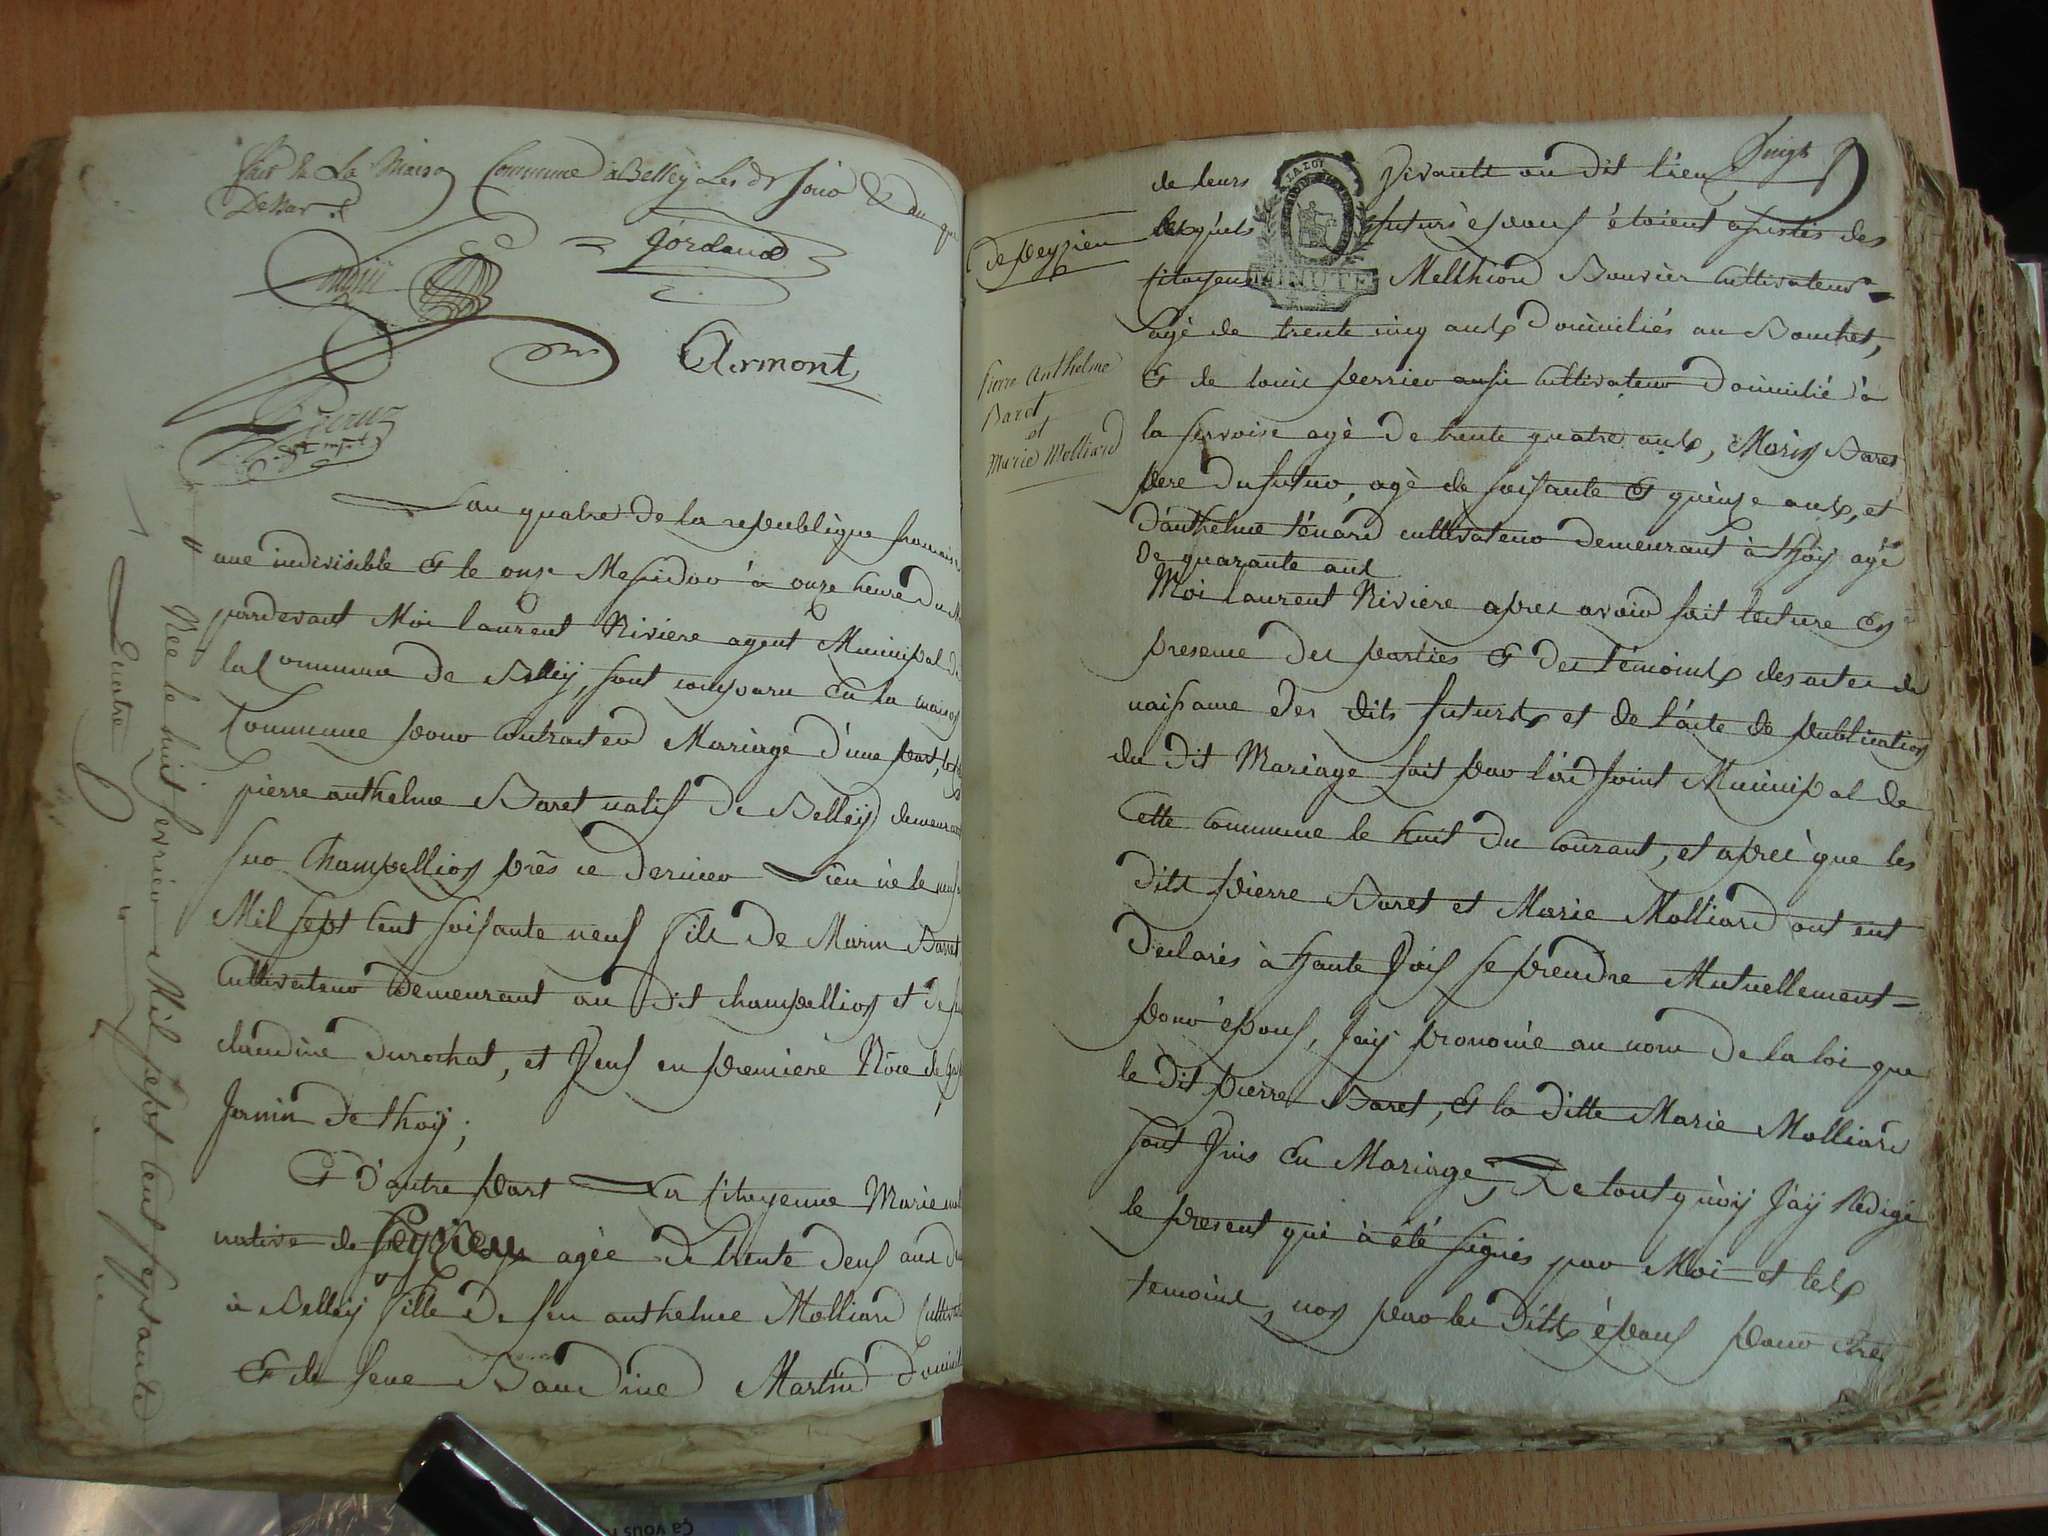 fait En La Maison Commune à Belley Les dt jour & an que
Dessus
Jordan
Clermont
L'an quatre de la republique francaise
une indivisible et le onze Messidor à onze heure du
pardevant Moi laurent Riviere agent Municipal de
la Commune de Belley, sont comparu En la maison
Commune pour Contracter Mariage d'une part,
pierre anthelme Baret natif de Belleÿ demeurant
sur Champellion près ce dernier Lieu né le
Mil sept Cent soisante neuf fils de Marin Baret
Cultivateur demeurant au dit champellion et de
claudine durochat, et Veuf en premiere Nôce de
Jannin de thoÿ;
Et d'autre part La Citoyenne Marie
native de peyzieu agée de trente deux ans
à Belleÿ fille de feu anthelme Molliard
Et de feue Baudine Martin
Née le huit fevrier Mil sept Cent soixante
Quatre
Vingt
de leurs Vivants au dit lieu,
A LA LOI
MINUTE
de peyzieu
lesquels futurs epoux étoient assistés des
Citoyens Melchiord Bouvier Cultivateur
agé de trente cinq ans Domiciliés au Bouchet,
Et de louis perrier aussi Cultivateur Domicilié à
pierre Anthelme
Baret
et
Marie Molliard
la servoise agé De trente quatre ans, Marin Baret
pere du futur, agé de soisante Et quinze ans, et
d'anthelme tenard cultivateur demeurant à thoÿ agé
de quarante ans
Moi laurent Riviere apres avoir fait lecture En
presence des parties Et des témoins des actes de
naissance des dits futurs et de l'acte de publication
du dit Mariage fait par l'adjoint Municipal de
Cette commune le huit du courant, et aprèe que les
dits pierre Baret et Marie Molliard ont eut
declarés à haute Voix se prendre Mutuellement
pour épouf, Jaÿ prononcé au nom De la loi que
le dit pierre Baret, Et la ditte Marie Molliard
sont Vnis En Mariage, De tout quoÿ J'aÿ Redigé
le present qui à été signés par Moi et les
temoins, non par les dits épouf pour